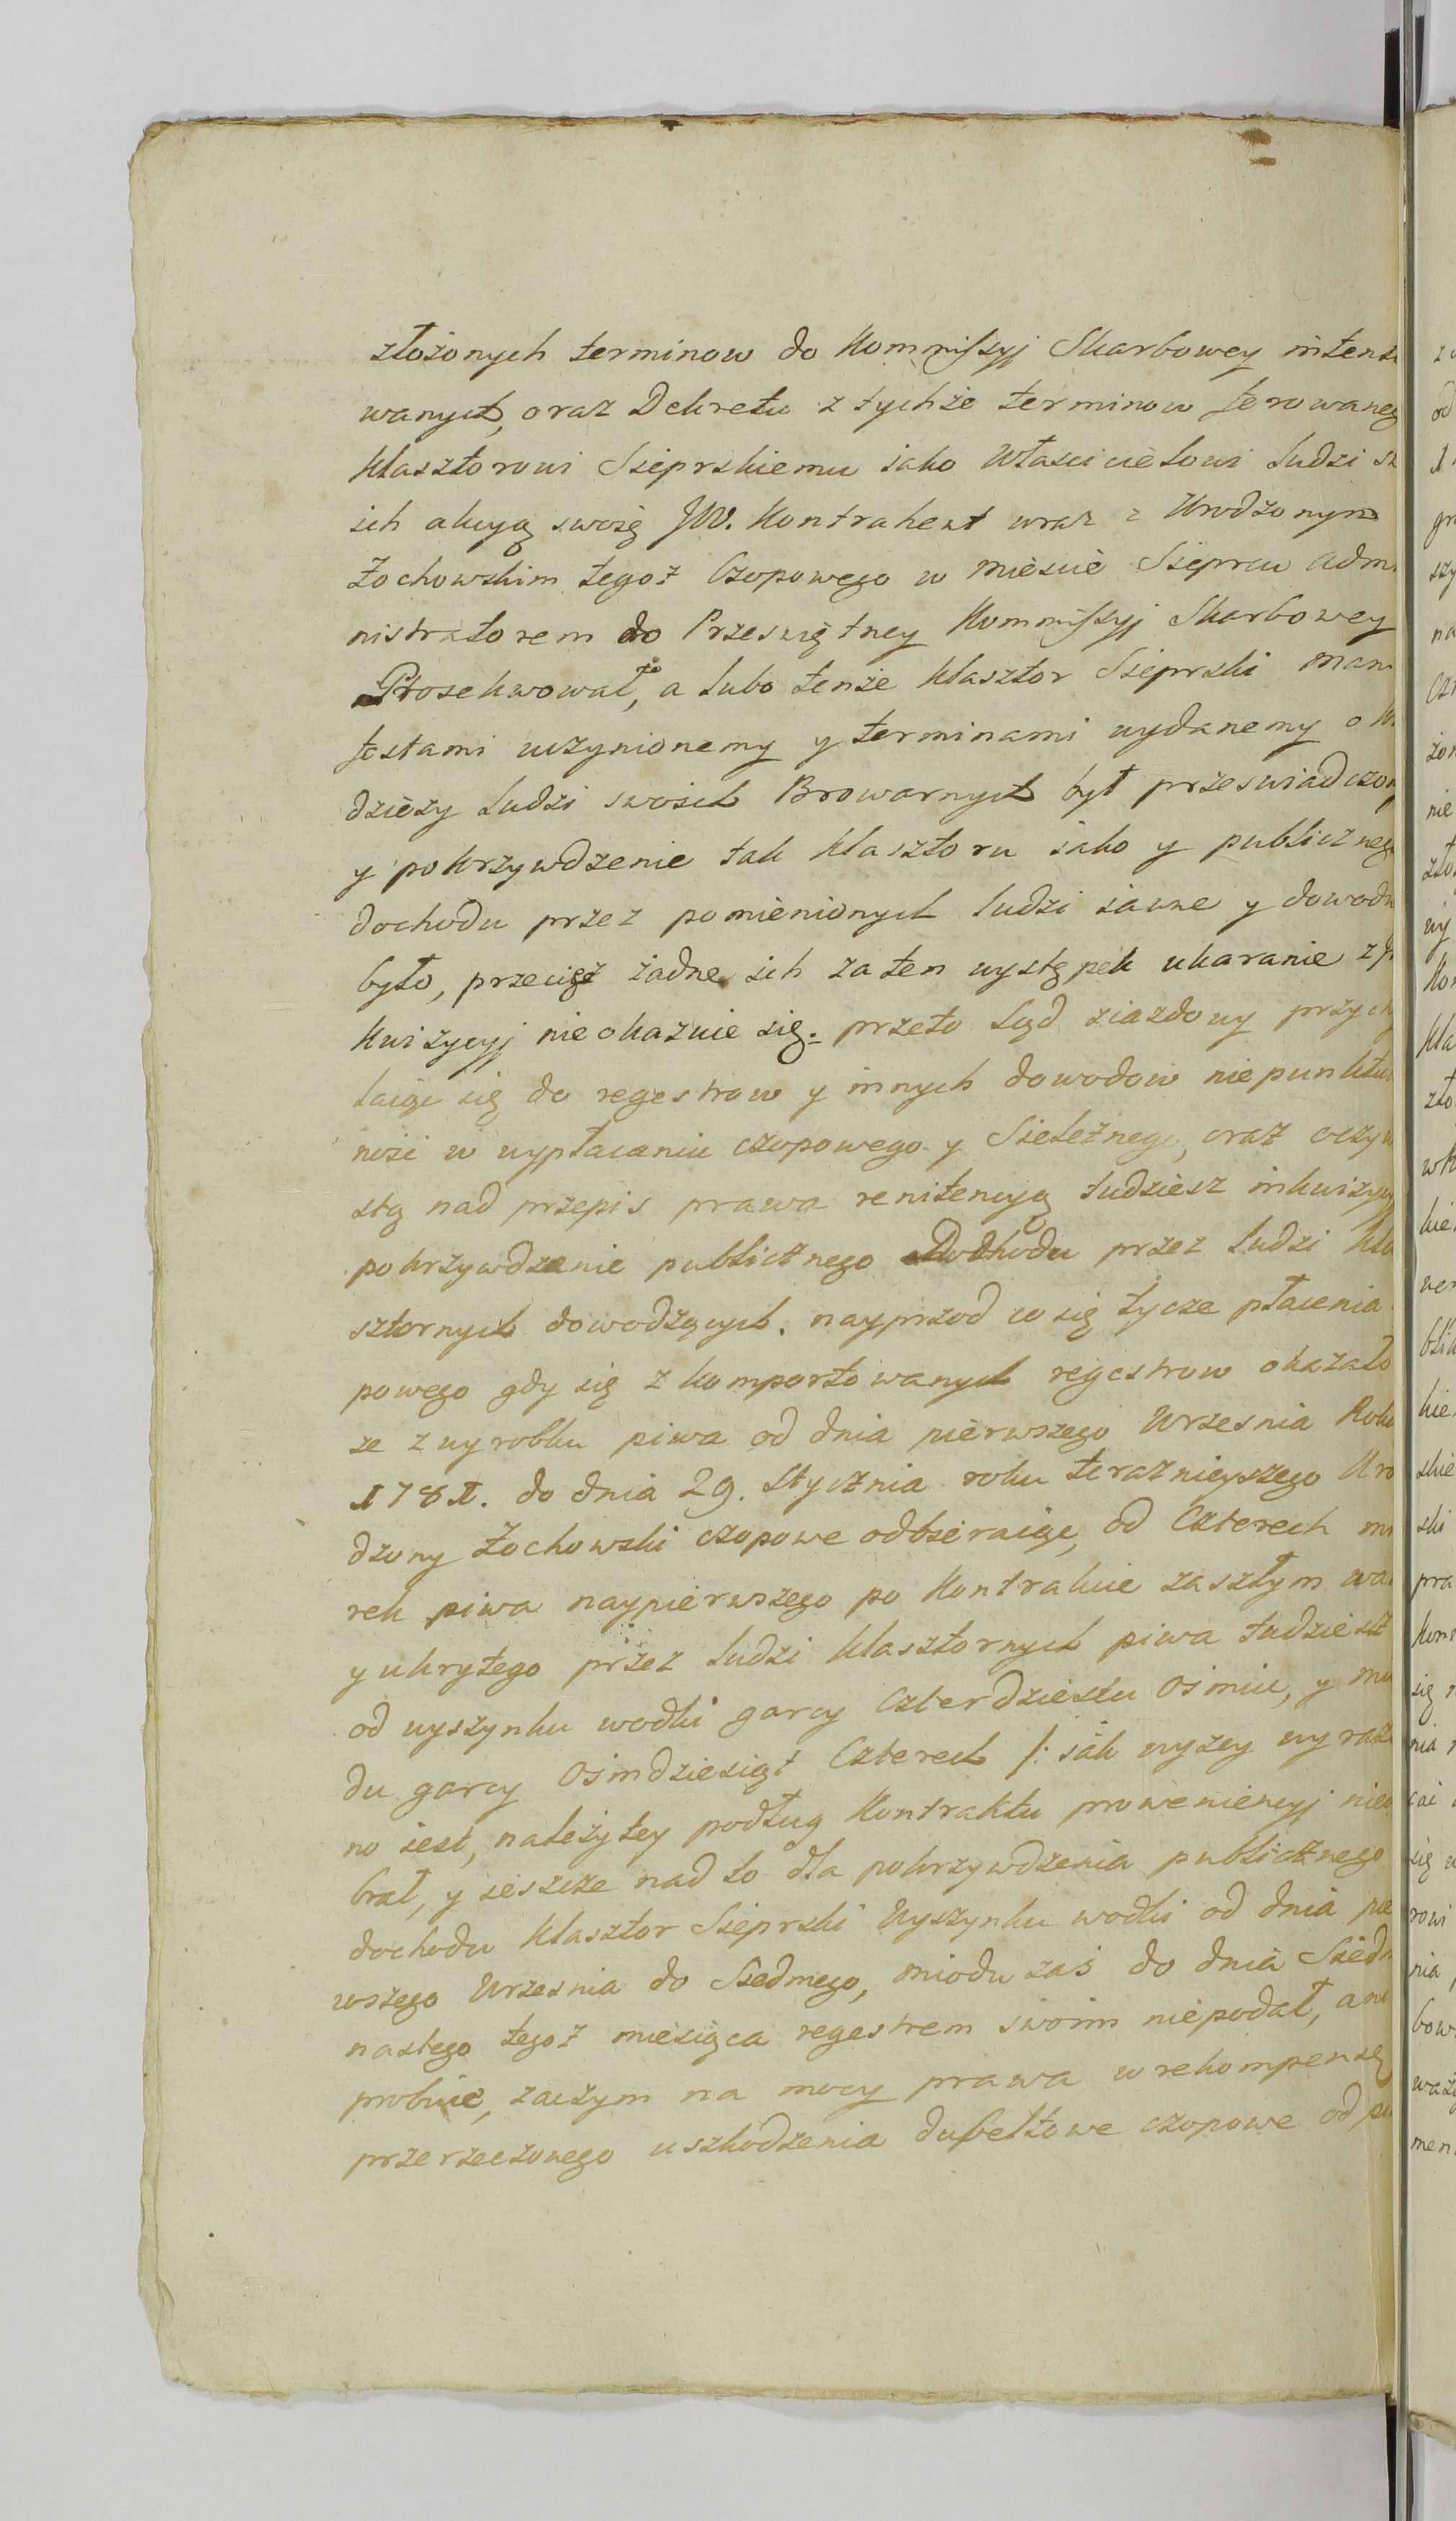 złożonych terminow do Kommiſsyj Skarbowey inten
wanych, oraz Dekretu z tychże terminow ferowaneg
klasztorowi Sieprskiemu iako Włascicielowi ludzi
ich akcyą swoię JW. Kontrahent wraz z Urodzonym
Żochowskim tegoż Czopowego w miescie Sieprcu Adm
nistratorem do Przeswiętney Kommiſsyj Skarbowey
Prosekwował to, a lubo tenże klasztor Sieprski man
festami uczynionemy y terminami wydanemy o k
dzieży ludzi swoich Browarnych był przeswiadczon
y pokrzywdzenie tak klasztoru iako y publiczneg
dochodu przez pomienionych ludzi iawne y dowodn
było, przecięż żadne ich za ten występek ukaranie z
kwizycyj nieokazuie się. przeto Sąd ziazdowy przych
laiąc się do regestrow y innych dowodow niepunktu
nośi w wypłacaniu czopowego y Sieleżnego, oraz oczyw
stą nad przepis prawa renitencyą tudziesz inkwizycy
pokrzywdzenie publicznego Dochodu przez ludzi kla
sztornych dowodzących. nayprzod co się tycze płacenia
powego gdy się z komportowanych regestrow okazało
ze z wyrobku piwa od dnia pierwszego Wrzesnia Roku
1781. do dnia 29. Stycznia roku teraznieyszego Uro
dzony Żochowski czopowe odbieraiąc, od Czterech
rek piwa naypierwszego po Kontrakcie zaszłym wa
y ukrytego przez ludzi klasztornych piwa tudziesz
od wyszynku wodki garcy Czterdziestu Osmiu, y mio
du garcy Osmdziesiąt Czterech /: iak wyzey wyraz
no iest, należytey podług Kontraktu proweniencyj nieo
brał, y ieszcze nad to dla pokrzywdzenia publicznego
dochodu klasztor Sieprski Wyszynku wodki od dnia pie
wszego Wrzesnia do Siedmego, miodu zas do dnia Siedm
nastego tegoż miesiąca regestrem swoim niepodał, ani
probuie, zaczym na mocy prawa w rekompensę
przerzeczonego uszkodzenia dubeltowe czopowe od